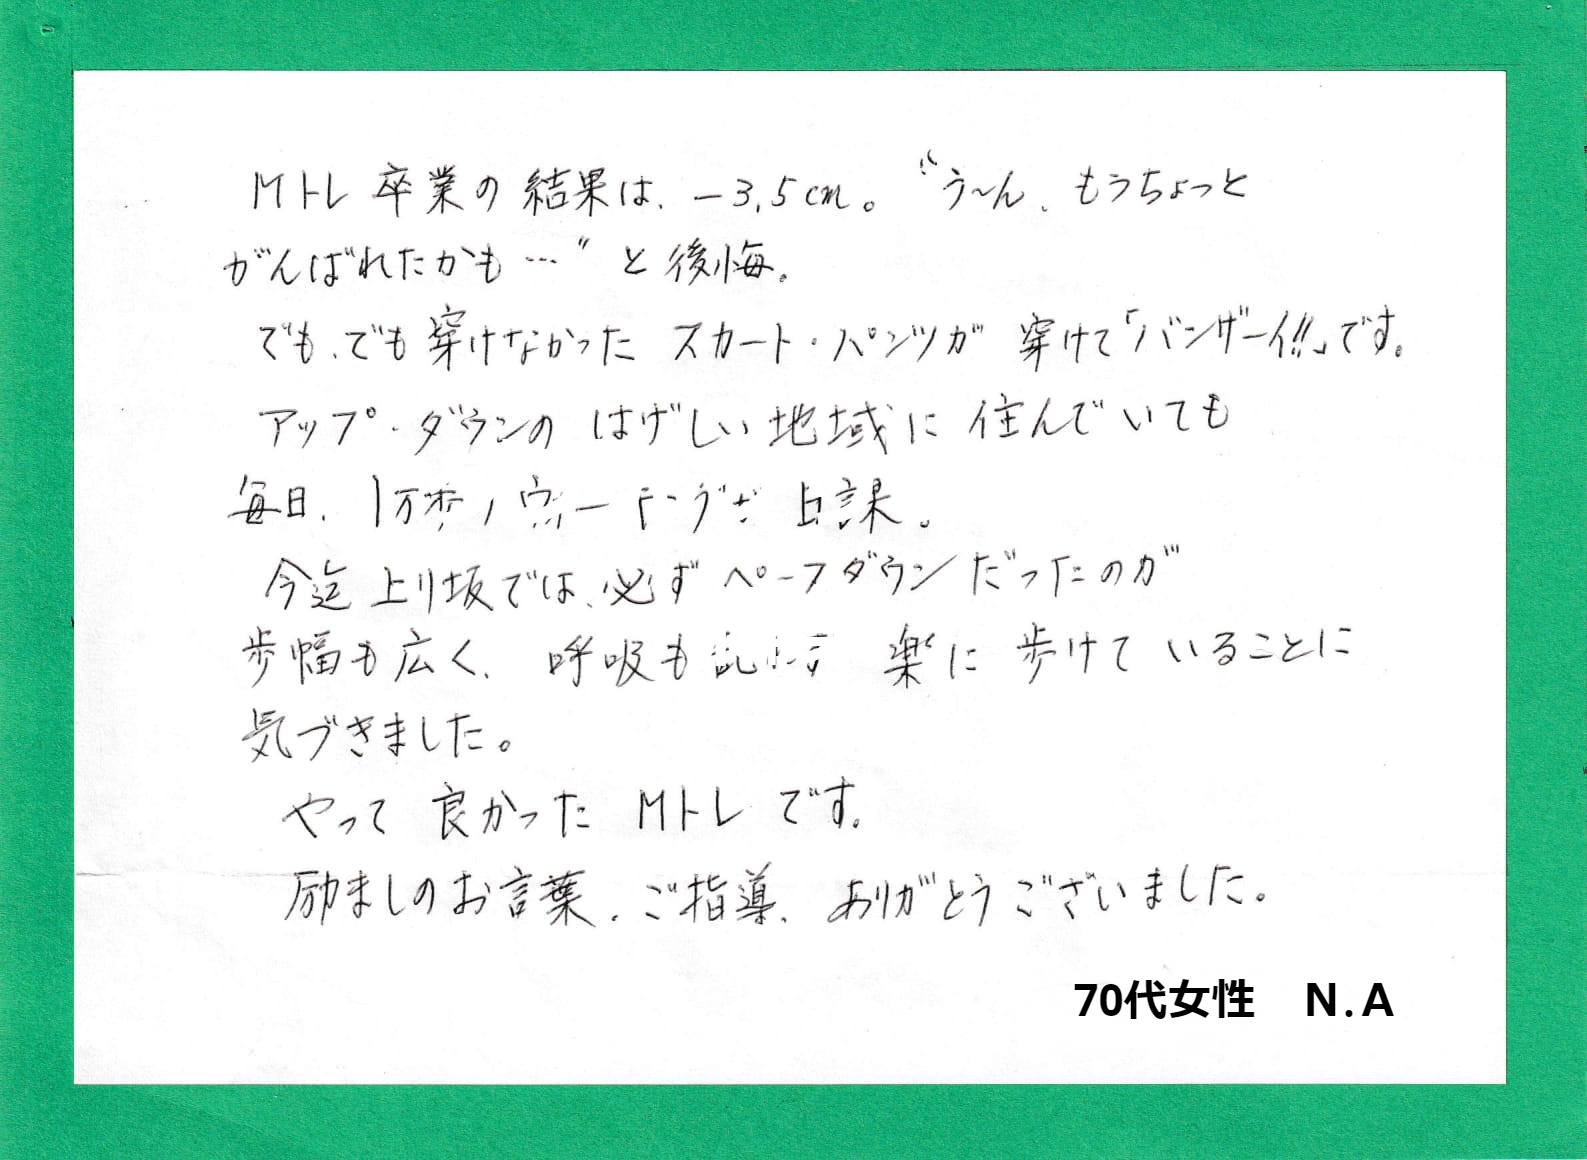 Mトレ 卒業の結果は、－3.5cm。“う～ん、もうちょっと
がんばれたかも…”と後悔。
でも、でも穿けなかったスカート・パンツが穿けて「バンザーイ!!」です。
アップ・ダウンのはげしい地域に住んでいても
毎日、1万歩 日課。
今迄上り坂では、必ずペースダウンだったのが
歩幅も広く、呼吸も 楽に歩けていることに
気づきました。
やって良かったMトレです。
励ましのお言葉、ご指導、ありがとうございました。
70代女性　N.A